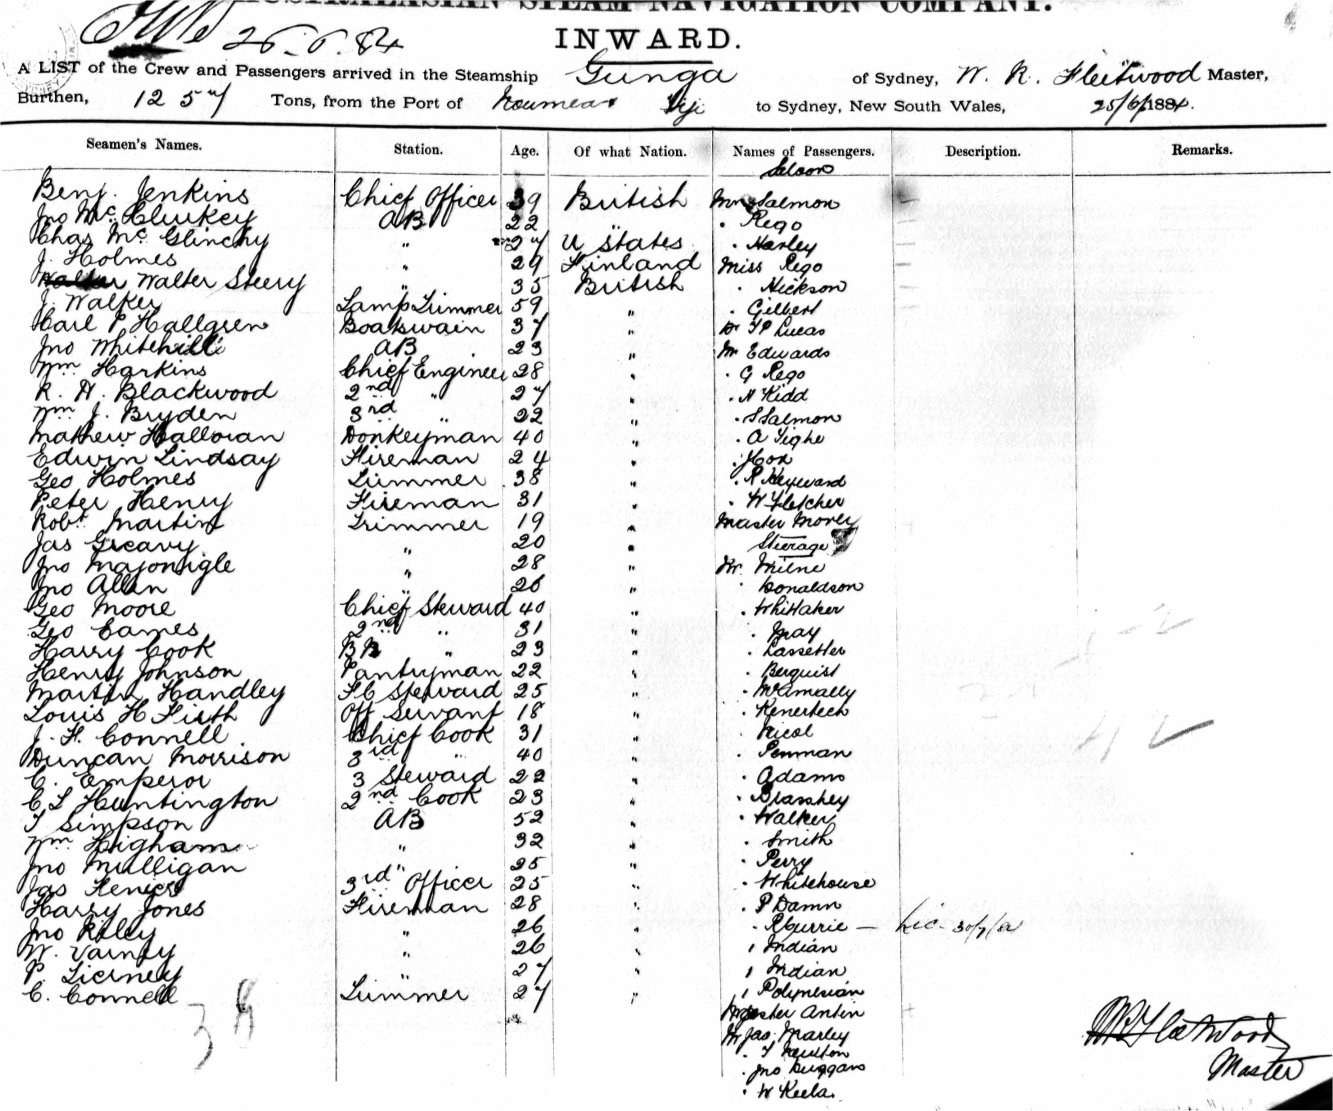 AUSTRALASIAN STEAM NAVIGATION COMPANY.
26.6.84
INWARD.
A LIST of the Crew and Passengers arrived in the Steamship Gunga of Sydney, W. R. Fleetwood Master,
Burthen, 1257 Tons, from the Port of Noumea Fiji to Sydney, New South Wales, 25/6/1884.
Seamen's Names. Station. Age. Of what Nation. Names of Passengers. Description. Remarks.
Saloon
Benj. Jenkins Chief Officer 39 British Mrs Salmon
Jno Mc Cluskey AB 22 " . Rego
Chas Mc Glinchy " 27 U States . Harley
J. Holmes " 29 Finland Miss Rego
Walter Steery " 35 British . Nickson
J. Walker Lamp Trimmer 59 " . Gilbert
Karl P Hallgren Boatswain 37 " Dr T P Lucas
Jno Whitehill AB 23 " Mr Edwards
Wm Harkins Chief Engineer 28 " . G Rego
R. H. Blackwood 2nd " 27 " . H Kidd
Wm J. Bryden 3rd " 22 " . S Salmon
Mathew Halloran Donkeyman 40 " . A Tighe
Edwin Lindsay Fireman 24 " . Cox
Geo Holmes Trimmer 38 " . R Heyward
Peter Henry Fireman 31 " . W Fletcher
Robt. Martin Trimmer 19 " Master Morey
Jas Greavy " 20 " Steerage
Jno Majonigle " 28 " Mr. Milne
Jno Allan " 26 " . Donaldson
Geo Moore Chief Steward 40 " . Whittaker
Geo Eames 2nd " 31 " . Gray
Harry Cook BB " 23 " . Lassetter
Henry Johnson Pantryman 22 " . Berquist
Martin Handley F C Steward 25 " . McAnally
Louis H Firth Off Servant 18 " .
J. F. Connell Chief Cook 31 " . Nicol
Duncan Morrison 3rd " 40 " . Penman
C. Emperor 3 Steward 22 " . Adams
C L Huntington 2nd Cook 23 " . Brasshey
T Simpson AB 52 " . Walker
Wm Higham " 32 " . Smith
Jno Mulligan " 25 " . Perry
Jas Fenick 3rd Officer 25 " . Whitehouse
Harry Jones Fireman 28 " . P Damn
Jno Riley " 26 " . R Currie —
W. Varney " 26 " 1 Indian
P. Tierney " 27 " 1 Indian
C. Connell Trimmer 27 " 1 Polynesian
Master Antin
Mr Jas. Marley
. T Newton
. Jno Duggan
. W Keela.
W R Fleetwood
Master